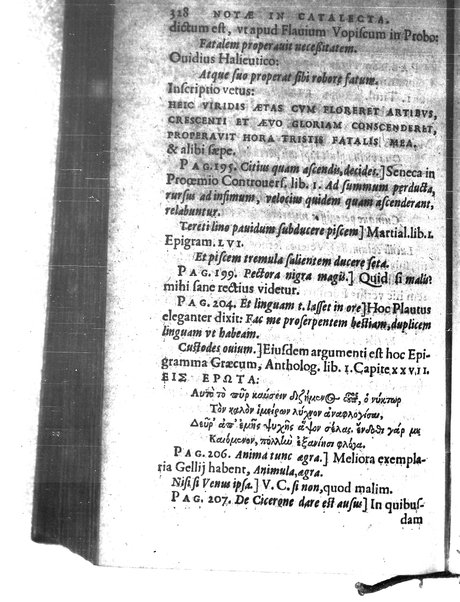 318 NOTÆ IN CATALECTA.
dictum est, vt apud Flauium Vopiscum in Probo:
Fatalem properauit necessitatem.
Ouidius Halieutico:
Atque suo properat sibi robore fatum.
Inscriptio vetus:
HEIC VIRIDIS ÆTAS CVM FLORERET ARTIBVS,
CRESCENTI ET ÆVO GLORIAM CONSCENDERET,
PROPERAVIT HORA TRISTIS FATALIS MEA.
& alibi sæpe.
PAG. 195. Citius quam ascendis, decides.] Seneca in
Proœmio Controuers. lib. 1. Ad summum perducta,
rursus ad infimum, velocius quidem quam ascenderant,
relabuntur.
Tereti lino pauidum subducere piscem] Martial. lib. 1.
Epigram. LVI.
Et piscem tremula salientem ducere seta.
PAG. 199. Pectora nigra magis.] Quid si malis?
mihi sane rectius videtur.
PAG. 204. Et linguam t. lasset in ore] Hoc Plautus
eleganter dixit: Fac me proserpentem bestiam, duplicem
linguam vt habeam.
Custodes ouium.] Eiusdem argumenti est hoc Epi-
gramma Græcum, Antholog. lib. 1. Capite XXVII.
ΕΙΣ ΕΡΩΤΑ:
Αυτο το πῦρ καύσειν διζήμενος ὁ νύκτωρ
Τον καλὸν ἱμείρων λύχνον ἀναφλογίσαι,
Δεῦρ' ἀπ' ἐμῆς ψυχῆς ἅψον σέλας. ἔνδοθι γάρ με
Καιόμενον, πολλὴν ἐξανίησι φλόγα.
PAG. 206. Anima tunc ægra.] Meliora exempla-
ria Gellij habent, Animula, ægra.
Nisi si Venus ipsa.] V. C. si non, quod malim.
PAG. 207. De Cicerone dare est ausus] In quibus-
dam